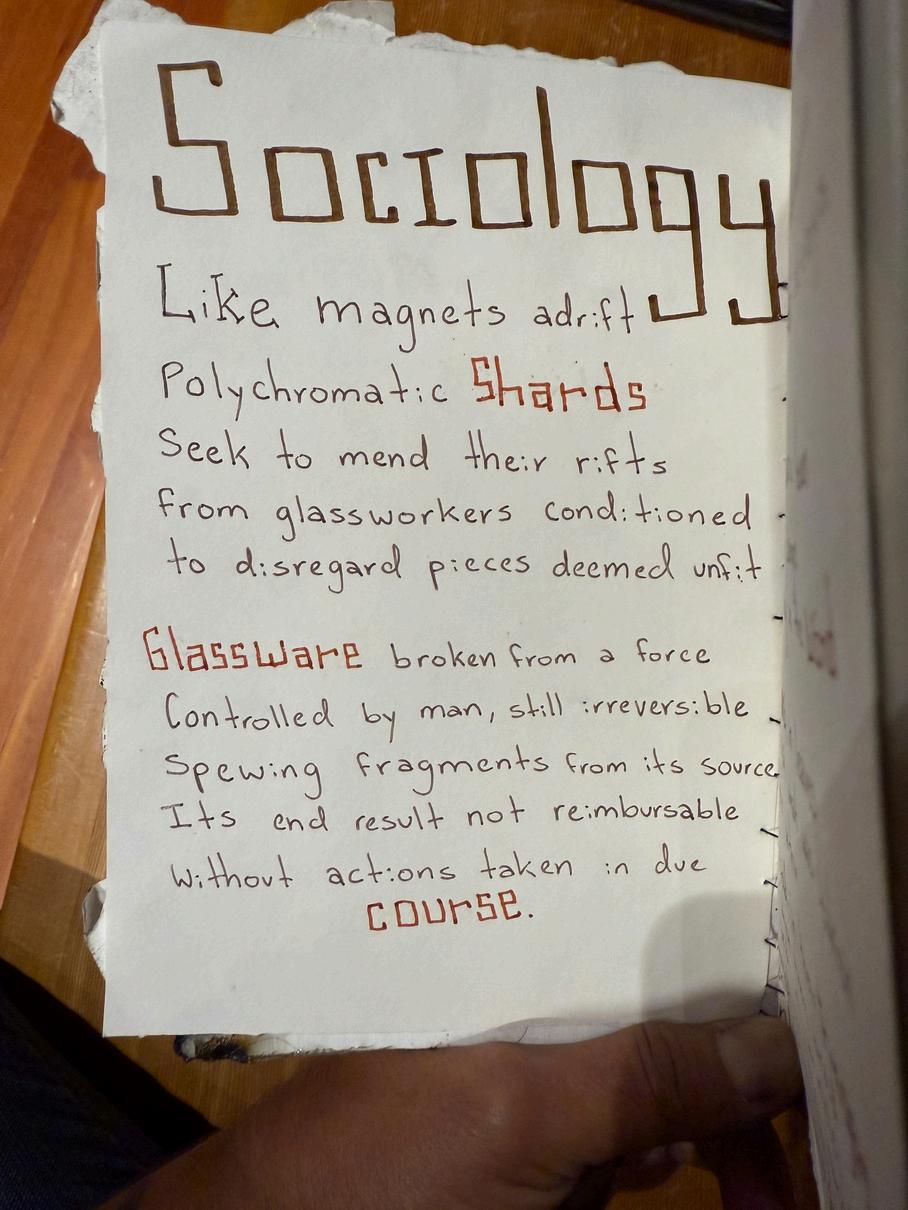 Sociology
Like magnets adrift
Polychromatic Shards
Seek to mend their rifts
from glassworkers conditioned
to disregard pieces deemed unfit
Glassware broken from a force
Controlled by man, still irreversible
Spewing fragments from its source
Its end result not reimbursable
Without actions taken in due
course.